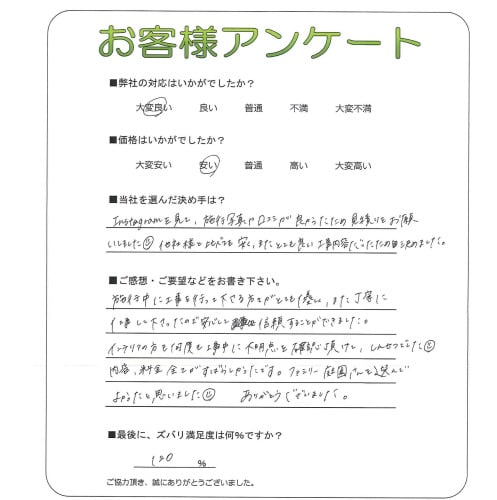 お客様アンケート
■弊社の対応はいかがでしたか？
大変良い 良い 普通 不満 大変不満
■価格はいかがでしたか？
大変安い 安い 普通 高い 大変高い
■当社を選んだ決め手は？
Instagramを見て、施行写真や口コミが良かったため見積りをお願い
いしました 他社様と比べても安く、またとても良い工事内容だったため決めました。
■ご感想・ご要望などをお書き下さい。
施行中に工事を行って下さる方々がとても優しく、また丁寧に
仕事して下さったので安心して 信頼することができました。
インテリアの方も何度も工事中に不明点を確認して頂けて、しんせつでした
内容、料金全てがすばらしかったです。ファミリー庭園さんを選んで
よかったと思いました ありがとうございました。
■最後に、ズバリ満足度は何％ですか？
120 ％
ご協力頂き、誠にありがとうございました。